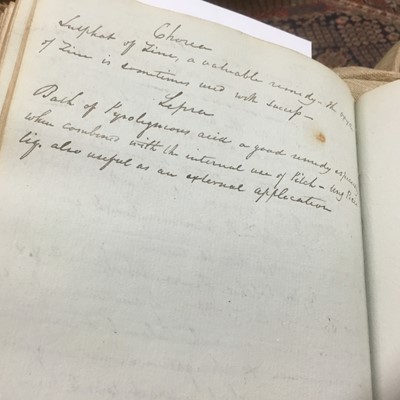 Chorea
Sulphat of Zinc, a valuable remedy - the oxyd
of Zinc is sometimes used with success -
Lepra
Bath of Pyroligneous acid a good remedy especially
when combined with the internal use of Pitch - Ung Picis
liq, also useful as an external application